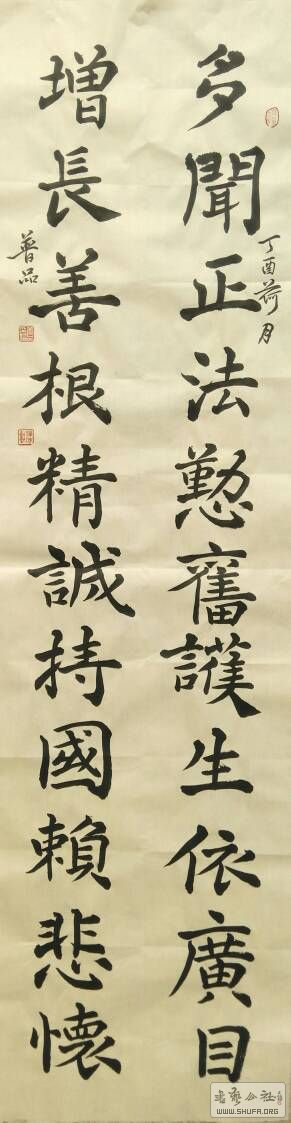 多聞正法懃奮護生依廣目
丁酉荷月
增長善根精誠持國賴悲懷
普品
書藝公社
WWW.SHUFA.ORG